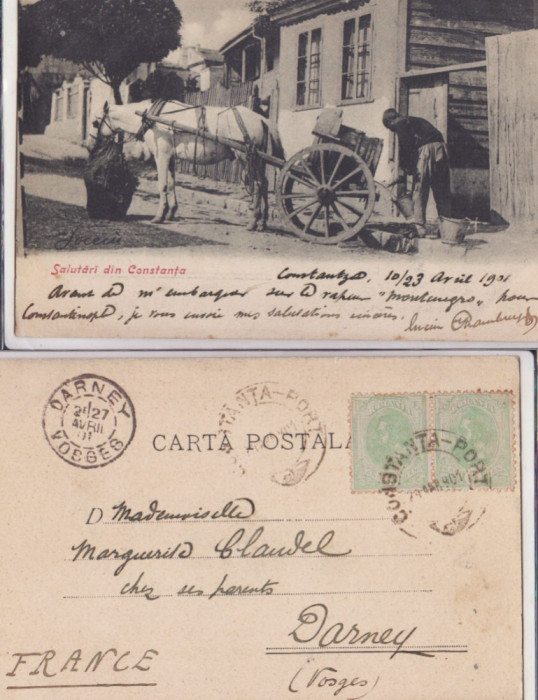 Salutări din Constanța
Constantza, 10/23 Avril 1901
Avant de m'embarquer sur le vapeur "Montenegro" pour
Constantinople, je vous envoie mes salutations sincères.
Lucien
DARNEY
27
AVRIL
01
VOSGES
CONSTANTA-PORT
CARTA POSTALA
CONSTANTA-PORT
D Mademoiselle
Marguerite Claudel
chez ses parents
Darney
(Vosges)
FRANCE